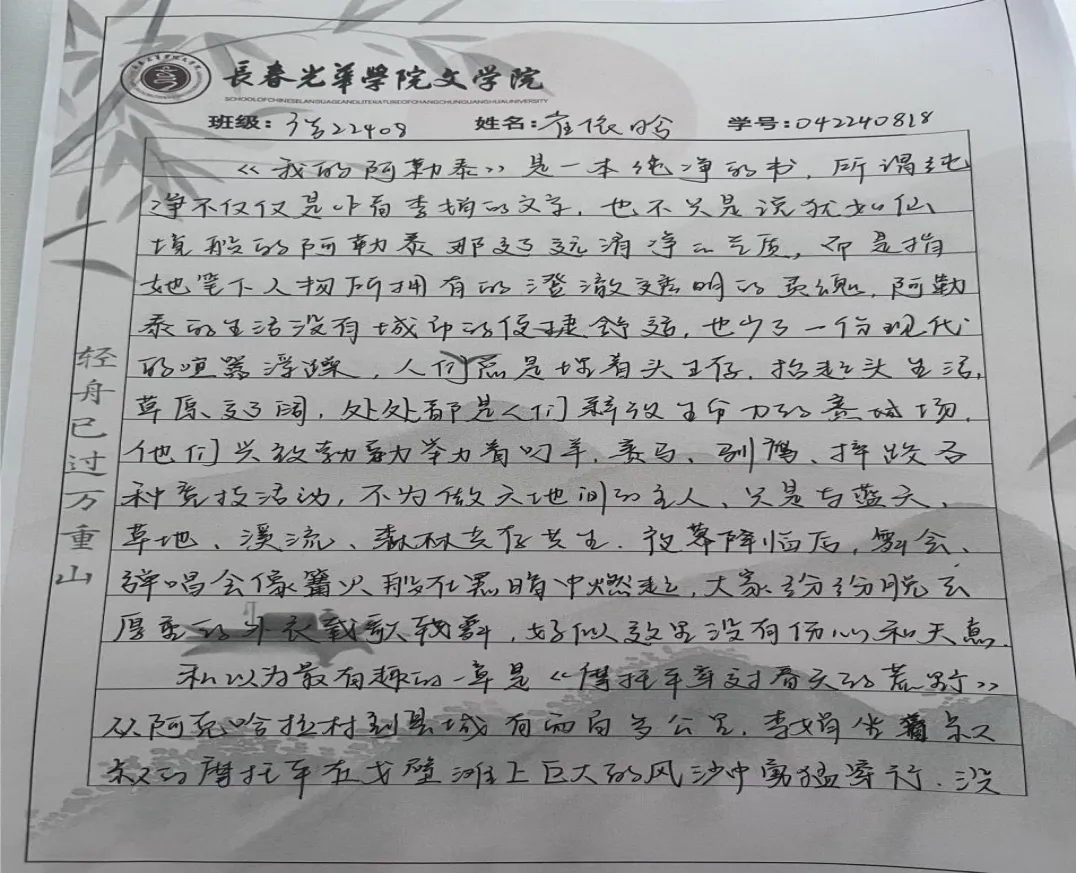 長春光華學院文学院
SCHOOLOFCHINESELANGUAGEANDLITERATUREOFCHANGCHUNGUANGHUAUNIVERSITY
班级：22408 姓名：崔依晗 学号：042240818
《我的阿勒泰》是一本纯净的书，所谓纯
净不仅仅是李娟的文字，也不只是说犹如仙
境般的阿勒泰那辽远清净的气质，而是指
她笔下人物所拥有的澄澈透明的灵魂，阿勒
泰的生活没有城市的便捷舒适，也少了一份现代
的喧嚣浮躁，人们总是埋着头生存，抬起头生活，
草原辽阔，处处都是人们释放生命力的竞技场，
他们兴致勃勃举办着叼羊、赛马、驯鹰、摔跤各
种竞技活动，不为做天地间的主人，只是与蓝天、
草地、溪流、森林共存共生．夜幕降临后，舞会、
弹唱会像篝火般在黑暗中燃起，大家纷纷脱去
厚重的外衣载歌载舞，好似这里没有伤心和天意．
私以为最有趣的一章是《摩托车穿过春天的荒野》
从阿克哈拉村到县城有两百多公里，李娟坐着叔
叔的摩托车在戈壁滩上巨大的风沙中勇猛穿行．没
轻舟已过万重山